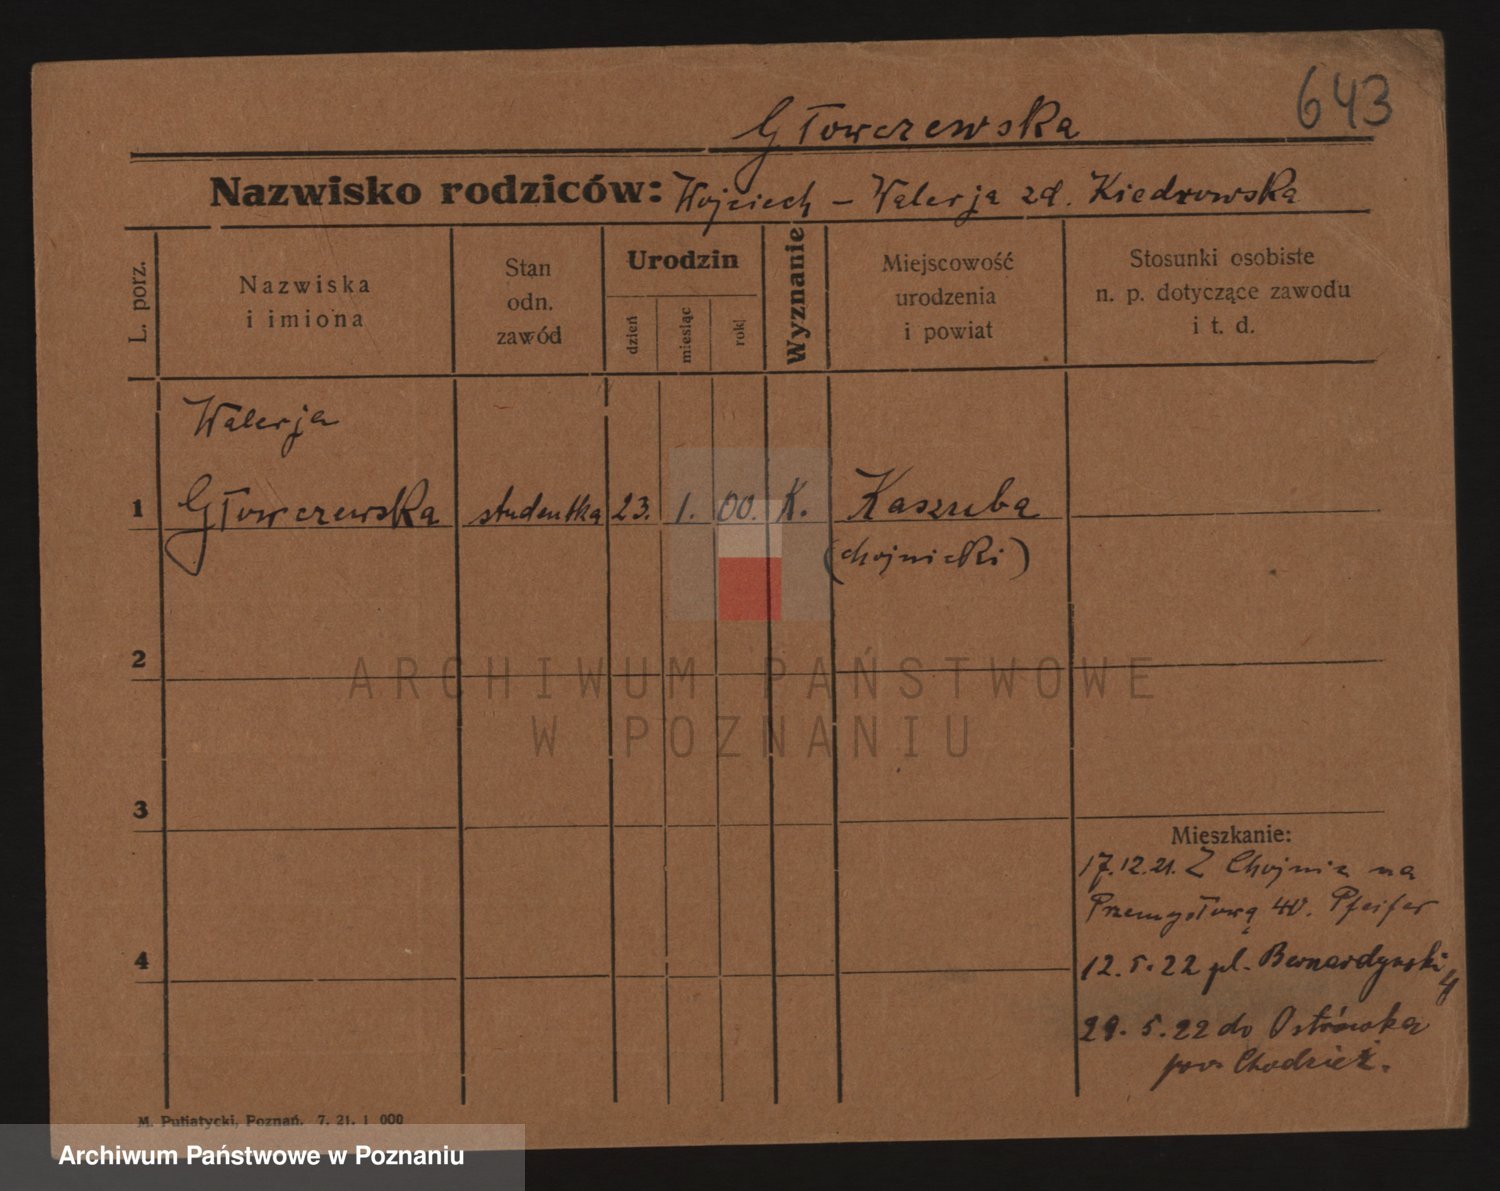 643
Głowczewska
Nazwisko rodziców: Wojciech – Walerja zd. Kiedrowska
L. porz.
Nazwiska
i imiona
Stan
odn.
zawód
Urodzin
dzień
miesiąc
rok
Wyznanie
Miejscowość
urodzenia
i powiat
Stosunki osobiste
n. p. dotyczące zawodu
i t. d.
Walerja
1 Głowczewska studentka 23. 1. 00. K. Kaszuba
(chojnicki)
2
ARCHIWUM PAŃSTWOWE
W POZNANIU
3
Mieszkanie:
17.12.21. Z Chojnic na
Przemysłową 40. Pfeifer
4
12.5.22 pl. Bernardyński 4
29.5.22 do Ostrówka
pow. Chodzież.
M. Putiatycki, Poznań. 7. 21. 1 000
Archiwum Państwowe w Poznaniu